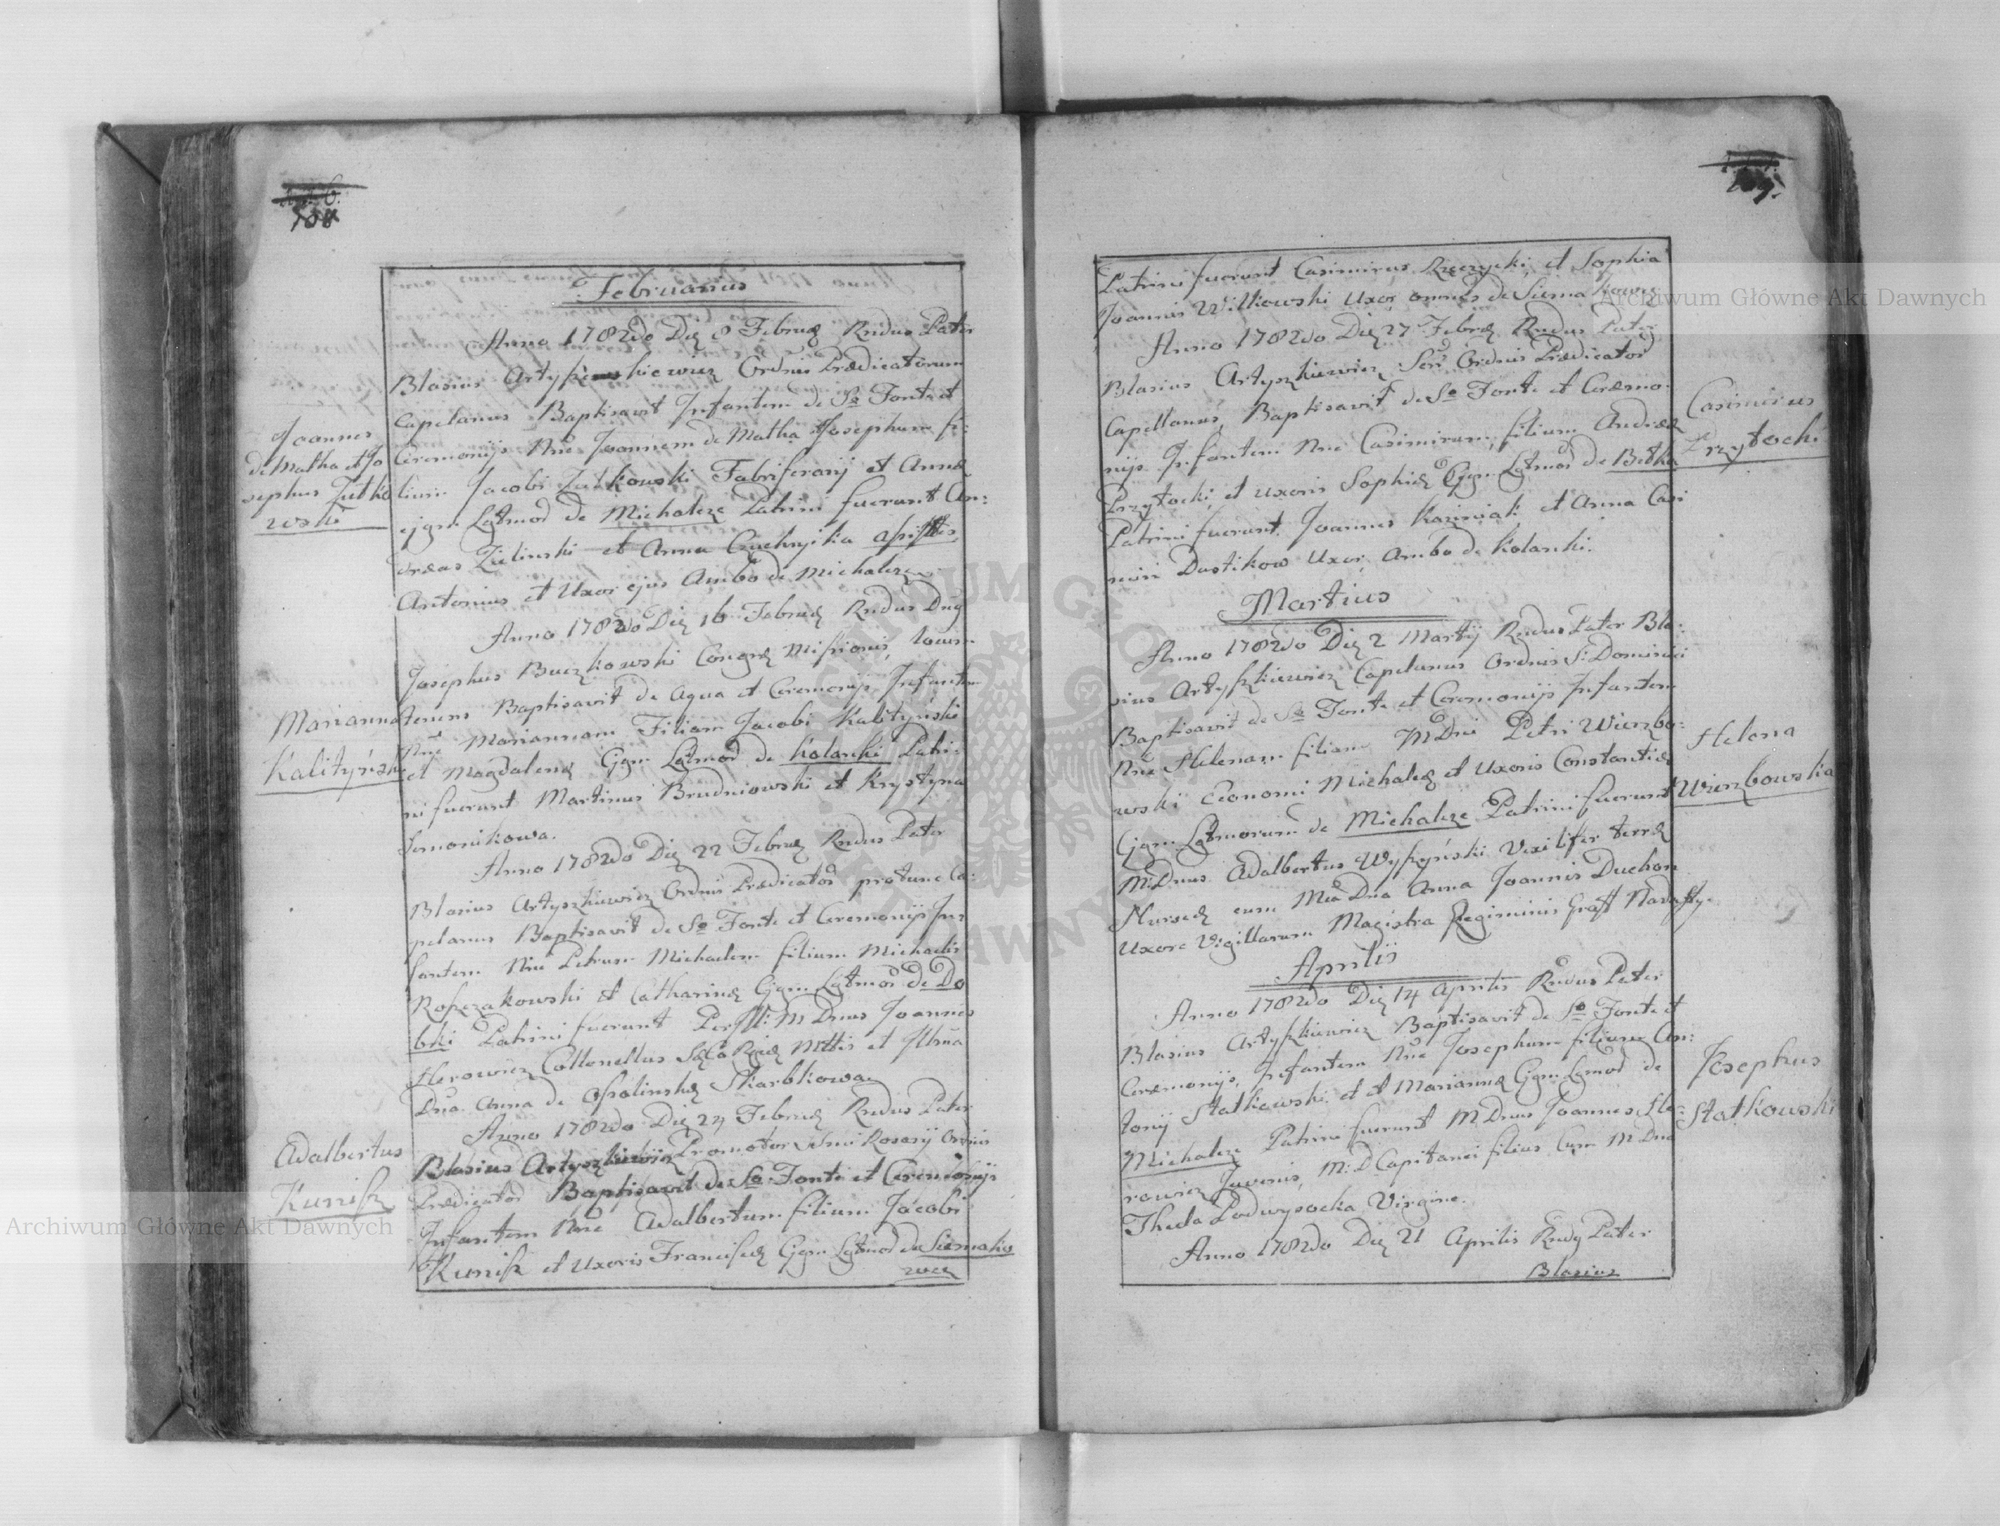 108
Februarius
Anno 1782do Die 8 Februæ Rndus Pater
Blasius Artyszkiewicz Ordinis Prædicatorum
Capelanus Baptisavit Infantem de Sº Fonte et
Ceremonijs Nne Joannem de Matha et Josephum fi:
lium Jacobi Zutkowski Fabriferarij et Annæ
Cjgm Lgtmoρ de Michalcze Patrini fuerunt An:
dreas Zielinski et Anna
Antonius et Uxor ejus Ambo de Michalcze
Joannes
de Matha et Jo
sephus Zutko
wski
Anno 1782do Die 16 Februæ Rndus Dng
Josephus Buczkowski Congræ Missionis, locum
tenens Baptisavit de Aqua et Ceremonijs Infantem
Nne Mariannam Filiam Jacobi Kalityński
et Magdalenæ Cjgm Lgtmoρ de Kolanki Patri:
ni fuerunt Martinus Brudniowski et Krystyna
Semonikowa.
Marianna
Kalityńska
Anno 1782do Die 22 Februæ Rndus Pater
Blasius Artyszkiewicz Ordinis Prædicatoρ protunc Ca:
pelanus Baptisavit de Sº Fonte et Ceremonijs In:
fantem Nne Petrum Michaelem filium Michaelis
Ropczakowski et Catharinæ Cjgm Lgtmoρ de Do
bki Patrini fuerunt Per Ill: M Dnus Joannes
Herowicz Collonellus Sæ Cæ Rgiæ Mttis et Illma
Dna Anna de Opolinskæ Skarbkowa
Anno 1782do Die 24 Februæ Rndus Pater
Blasius Artyszkiewicz Promotor Ssmi Rosarij Ordinis
Prædicatoρ Baptisavit de Sº Fonte et Ceremonijs
Infantem Nne Adalbertum filium Jacobi
Kunisz et Uxoris Franciscæ Cjgm Lgtmoρ de Siemako
wce
Adalbertus
Kunisz
109.
Patrini fuerunt Casimirus Rzeczycki, et Sophia
Joannis Wilkowski Uxor, omnes de Siemakowce
Anno 1782do Die 27 Februæ Rndus Pater
Blasius Artyszkiewicz Ordinis Prædicatoρ
Capellanus, Baptisavit de Sº Fonte et Ceremo:
nijs Infantem Nne Casimirum, filium Andreæ
Przytocki, et Uxoris Sophiæ Cjgm Lgtmoρ de
Patrini fuerunt Joannes Kazimiak et Anna Casi
miri Dustikow Uxor, Ambo de Kolanki.
Casimirus
Przytocki
Martius
Anno 1782do Die 2 Martij Rndus Pater Bla:
sius Artyszkiewicz Capelanus Ordinis S: Dominici
Baptisavit de Sº Fonte et Ceremonijs Infantem
Nne Helenam filiam M Dni Petri Wierzbo:
wski Œconomi Michalcæ et Uxoris Constantiæ
Cjgm Lgtmorum de Michalcze Patrini fuerunt
M: Dnus Adalbertus Wyszyński Vexilifer terræ
Nursæ cum Mca Dna Anna Joannis Duchon
Uxore Vigillarum Magistra Regiminis Graff Nadasty.
Helena
Wierzbowska
Aprilis
Anno 1782do Die 14 Aprilis Rndus Pater
Blasius Artyszkiewicz Baptisavit de Sº Fonte et
Ceremonijs, Infantem Nne Josephum filium An:
tonij Statkowski et et Mariannæ Cjgm Lgmoρ de
Michalcze Patrini fuerunt M Dnus Joannes He:
rowicz Juvenis, M: D Capitanei filius Cum M Dna
Thecla Podwysocka Virgine.
Josephus
Statkowski
Anno 1782do Die 21 Aprilis Rndg Pater
Blasius
Archiwum Główne Akt Dawnych
Archiwum Główne Akt Dawnych
ARCHIWUM GŁÓWNE AKT DAWNYCH